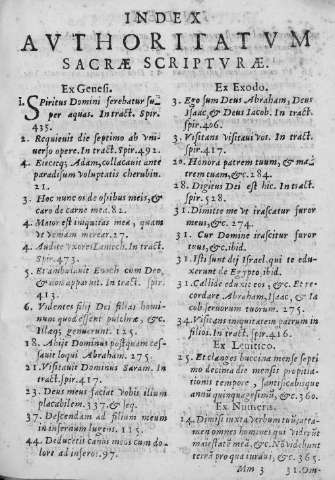 INDEX
AVTHORITATVM
SACRÆ SCRIPTVRÆ.
Ex Genesi.
1. Spiritus Domini ferebatur su-
per aquas. In tract. Spir.
435.
2. Requieuit die septimo ab vni-
uerso opere. In tract. Spir. 492.
4. Eiecitq; Adam, collocauit ante
paradisum voluptatis cherubin.
21.
3. Hoc nunc os de ossibus meis, &
caro de carne mea. 82.
4. Maior est iniquitas mea, quam
vt veniam merear. 27.
4. Audite vxores Lamech. In tract.
Spir. 473.
5. Et ambulauit Enoch cum Deo,
& non apparuit. In tract. spir.
413.
6. Videntes filij Dei filias homi-
num quod essent pulchræ, &c.
Illæq; genuerunt. 125.
18. Abijt Dominus postquam ces-
sauit loqui Abraham. 275.
21. Visitauit Dominus Saram. In
tract. Spir. 417.
23. Deus meus faciat vobis illum
placabilem. 337. & seq.
37. Descendam ad filium meum
in infernum lugens. 115.
44. Deducetis canos meos cum do-
lore ad inferos. 97.
Ex Exodo.
3. Ego sum Deus Abraham, Deus
Isaac, & Deus Iacob. In tract.
spir. 406.
3. Visitans visitaui vos. In tract.
spir. 417.
20. Honora patrem tuum, & ma-
trem tuam, &c. 284.
28. Digitus Dei est hic. In tract.
spir. 528.
31. Dimitte me vt irascatur furor
meus, &c. 274.
31. Cur Domine irascitur furor
tuus, &c. ibid.
31. Isti sunt dij Israel, qui te edu-
xerunt de Egypto. ibid.
31. Callide eduxit eos, &c. Et re-
cordare Abraham, Isaac, & Ia
cob seruorum tuorum. 275.
34. Visitans iniquitatem patrum in
filios. In tract. spir. 416.
Ex Leuitico.
25. Et clanges buccina mense septi
mo decima die mensis propitia-
tionis tempore, sanctificabisque
annum quinquagesimum, &c. 360.
Ex Numeris.
14. Dimisi iuxta verbum tuum,
omnes homines qui viderunt
maiestatem meam, &c. Non videbunt
terram pro qua iuraui, &c. 365.
Mm 3 31. Om-